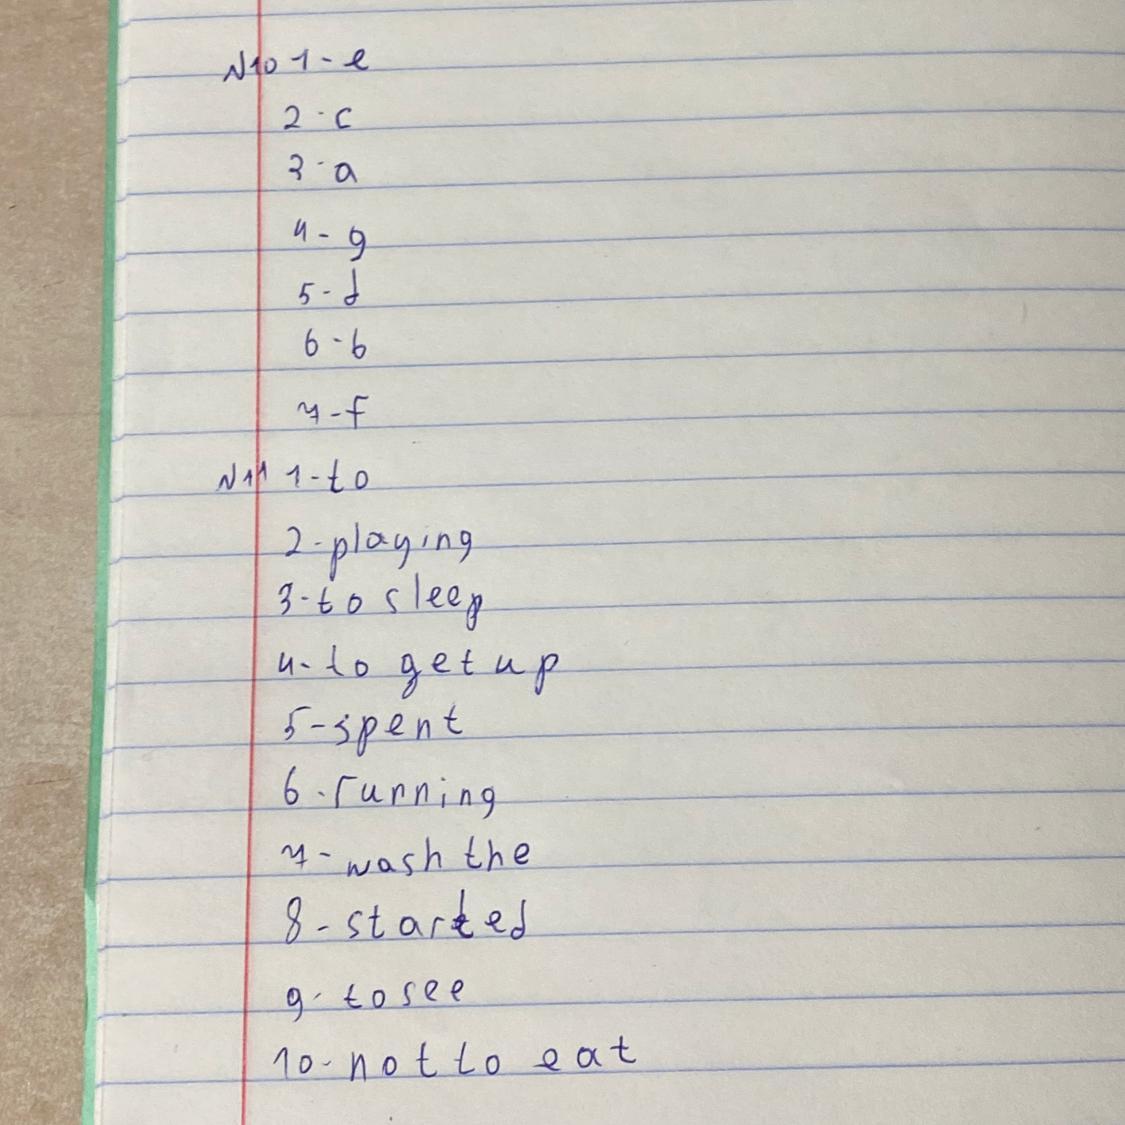 N10 1 - e
2 - c
3 - a
4 - g
5 - d
6 - b
7 - f
N11 1 - to
2 - playing
3 - to sleep
4 - to get up
5 - spent
6 - running
7 - wash the
8 - started
9 - to see
10 - not to eat